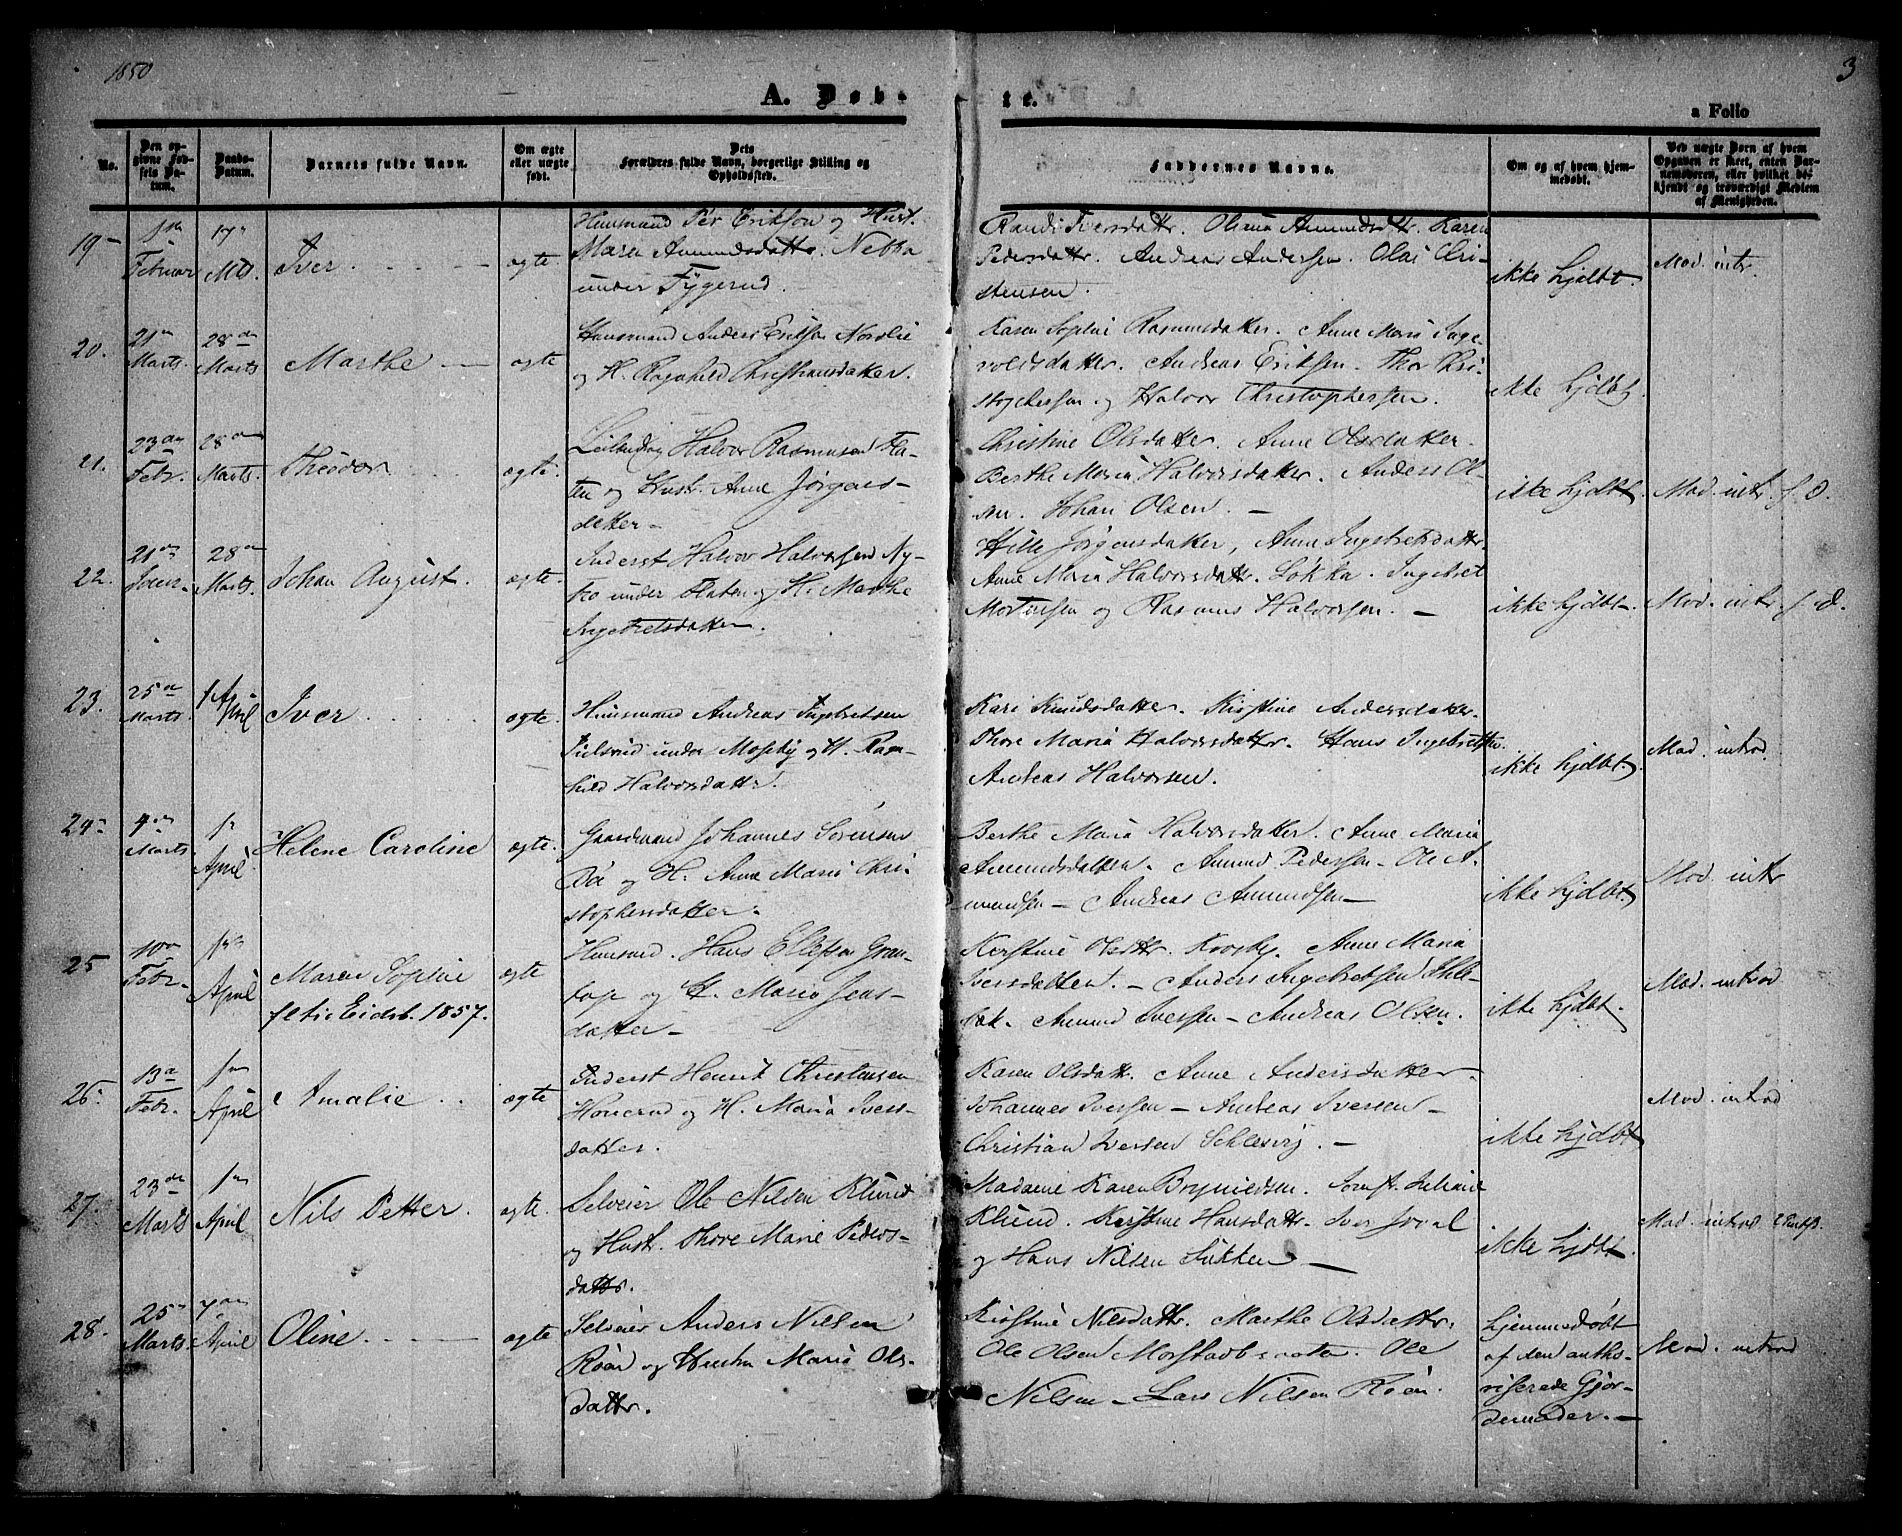 1850
3
A. Døb-
te.
a Folio
No.
Den op-
givne Fød-
sels Da-
tum.
Daabs-
Datum.
Barnets fulde Navn.
Om ægte
eller uægte
født.
Dets
Forældres fulde Navn, borgerlige Stilling og
Opholdssted.
Faddernes Navne.
Om og af hvem hjem-
medøbt.
Ved uægte Børn af hvem
Opgaven er skeet, enten Bar-
nemoderen, eller hvilket be-
kjendt og troværdigt Medlem
af Menigheden.
19
Februar
17
Mts.
Iver
ægte.
Huusmand Per Eriksen og Hust.
Maren Amundsdattr.
under Tygerud.
Randi Iversdattr. Olava Amundsdttr. Karen
Pedersdattr. Andreas Andersen. Olai Chri-
stensen.
ikke hjdbt.
Mod. intr.
20.
21
Marts.
28de
Marts
Marthe
ægte
Huusmand Anders Eriksen Nordlie
og H. Ragnhild Christiansdatter.
Karen Sophie Rasmusdatter. Anne Marie Inge-
voldsdattr. Andreas Eriksen. Thor Chri-
stophersen og Halvor Christophersen.
ikke hjdbt.
21.
23de
Febr.
28
Marts.
Theodor
ægte.
Leilending Halvor Rasmussen Fla-
ten og Hust. Anne Jørgens-
datter
Christine Olsdatter. Anne Olsdatter.
Berthe Maria Halvorsdatter. Anders Ol-
sen. Johan Olsen.
ikke hjdbt.
Mod. intr. f. d.
22.
21
Januar.
28
Marts.
Johan August.
ægte.
Inderst Halvor Halvorsen Ny-
bro under Flaten og H. Marthe
Ingebretsdatter.
Hille Jørgensdatter, Anne Ingebretsdattr.
Anne Maria Halvorsdattr. Løkka. Ingebret
Mortensen og Rasmus Halvorsen.
ikke hjdbt.
Mod. intr. f. d.
23.
25
Marts
1 April
Iver
ægte.
Huusmand Andreas Ingebretsen
under Moseby og H. Ragn-
hild Halvorsdattr.
Kari Knudsdatter. Kirstine Andersdatter.
Thore Maria Halvorsdattr. Hans Ingebretsen.
Andreas Halvorsen.
ikke hjdbt.
Mod. introd.
24
4
Marts
1
April
Helene Caroline
ægte.
Gaardmand Johannes Sørensen
Bøe og H. Anne Maria Chri-
stophersdatter.
Berthe Maria Halvorsdatter. Anne Maria
Amundsdatter. Amund Pedersen. Ole A-
mundsen. Andreas Amundsen
ikke hjdbt.
Mod. intr
25
10
Febr.
1
April
Maren Sophie
ægte
fl. til Eidsb. 1857.
Huusmd. Hans Ellefsen Gran-
og H. Maria Jens-
datter
Kerstine Olsdttr. Anne Maria
Iversdatter. Anders Ingebretsen
bæk. Amund Iversen. Andreas Olsen.
ikke hjdbt.
Mod. introd
26.
13
Febr.
1
April
Amalie
ægte
Inderst Henrik Christensen
og H. Maria Ivers-
datter.
Karen Olsdattr. Anne Andersdatter.
Johannes Iversen. Andreas Iversen
Christian Iversen Schlesvig.
ikke hjdbt
Mod. introd
27.
23de
Marts
1
April
Nils Petter.
ægte.
Selveier Ole Nilsen Klund
og Hust. Thore Marie Peders-
dattr.
Madame Karen Bryniedsen. Jomf. Juliane
Klund. Kirstine Hansdattr. Iver
og Hans Nilsen
ikke hjdbt.
Mod. introd
28.
25
Marts.
7
April
Oline
ægte
Selveier Anders Nilsen
Røen og Hustru Maria Ols-
dattr.
Kirstine Nilsdattr. Marthe Olsdattr.
Ole Olsen Morstadbraaten. Ole
Nilsen. Lars Nilsen Røen.
hjemmedøbt
af den autho-
riserede Gjor-
demoder.
Mod. introd